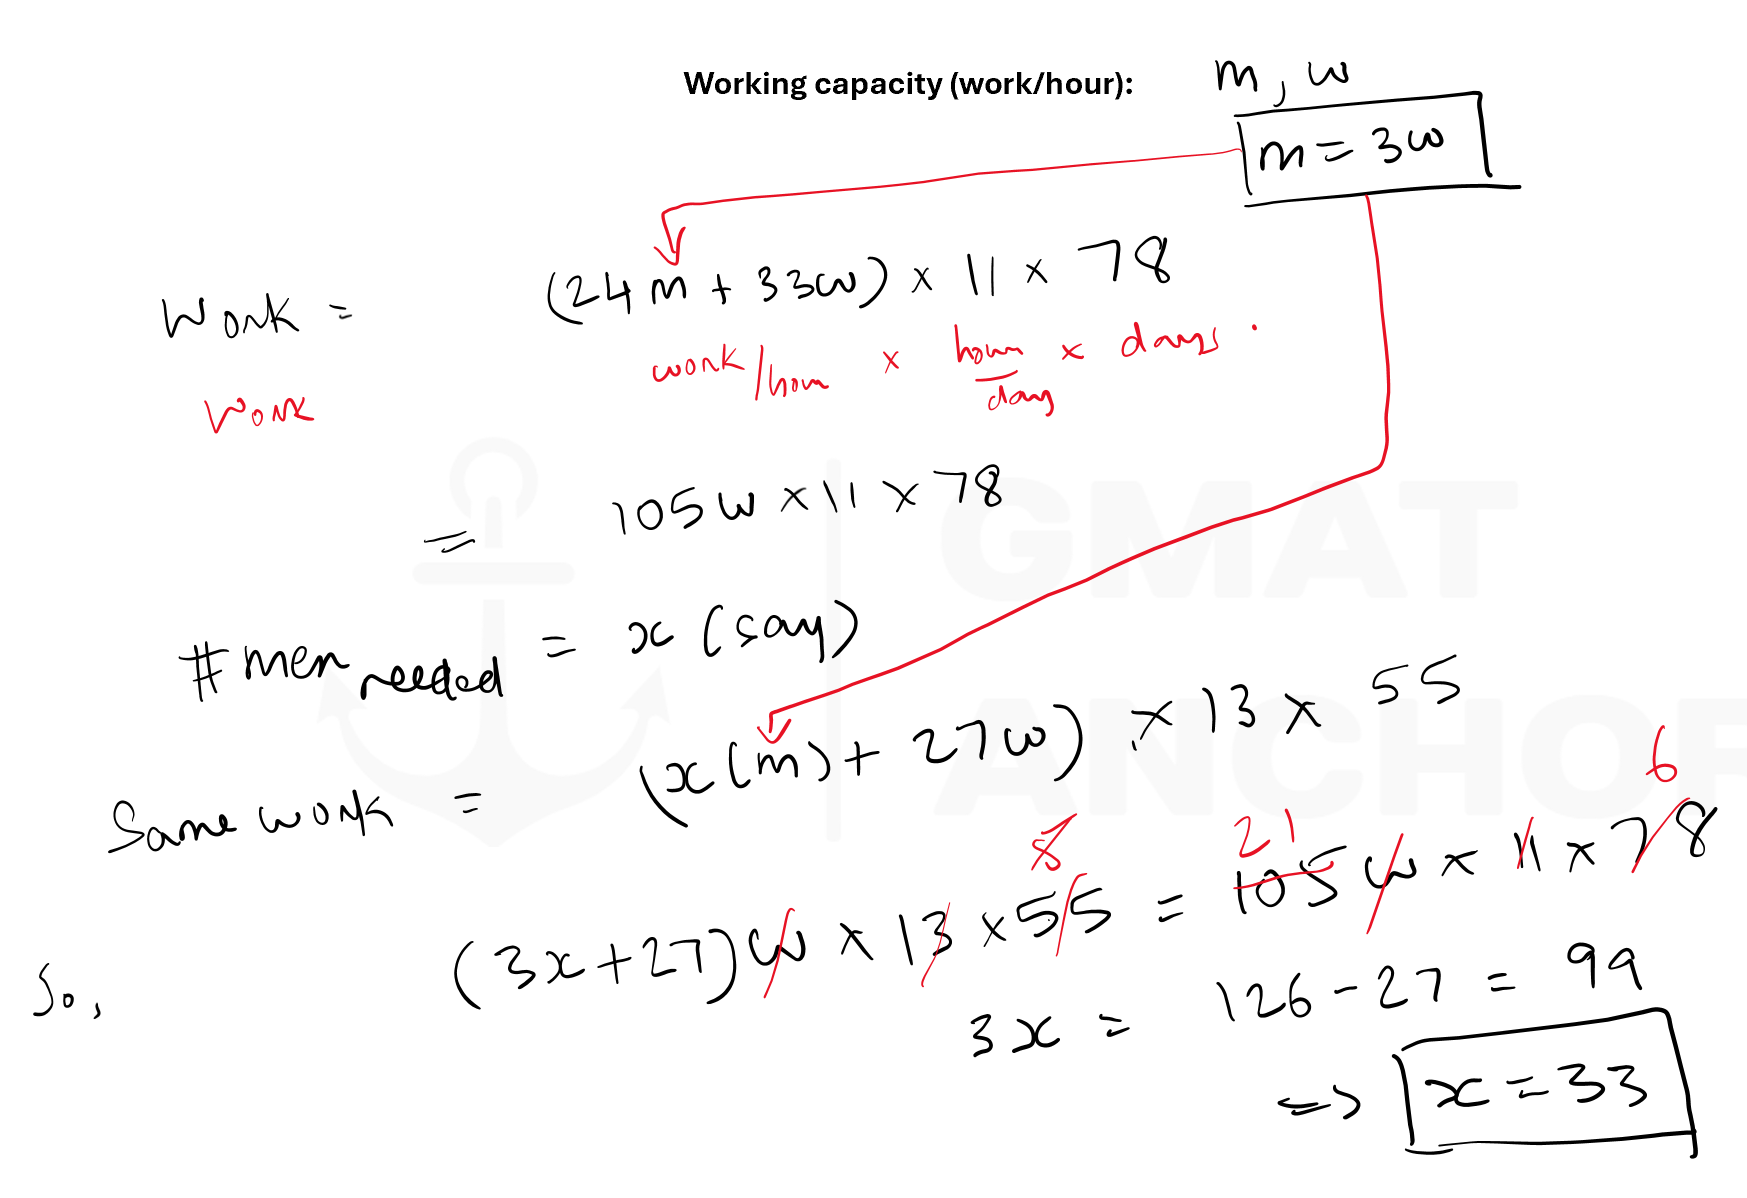 Working capacity (work/hour): m, w
m = 3w
Work = (24m + 33w) × 11 × 78
Work work/hour × hour/day × days.
= 105w × 11 × 78
#men needed = x (say)
Same work = (x(m) + 27w) × 13 × 55
5 21 6
So, (3x+27)w × 13 × 55 = 105w × 11 × 78
3x = 126 - 27 = 99
=> x = 33
GMAT
ANCHOR